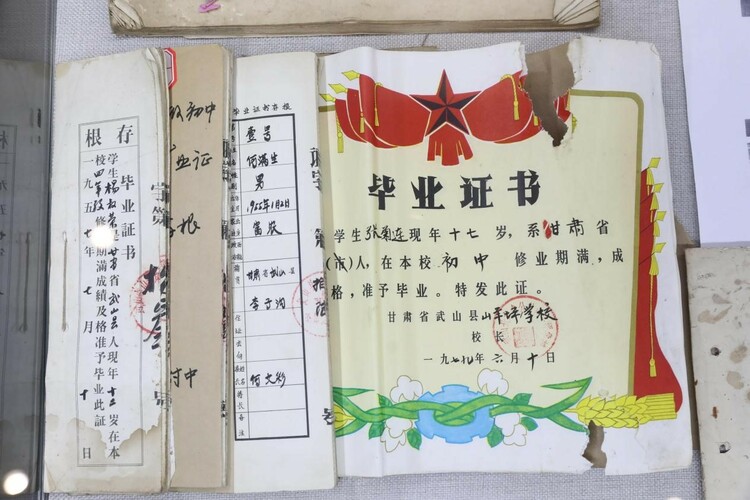 存根
毕业证书
字第 号
学生杨 荣是甘肃省武山县人现年十二岁在本
校四年段修业期满成绩及格准予毕业此证
一九五七年七月十日
初中
业证
根
村中
毕业证书存根
壹号
何满生
男
1955年1月2日
富农
甘肃省武山县
李子沟
何文彩
毕业证书
学生张菊连现年十七岁,系甘肃省
(市)人,在本校初中 修业期满,成
格,准予毕业。特发此证。
甘肃省武山县 坪学校
校长
一九七九年六月十日